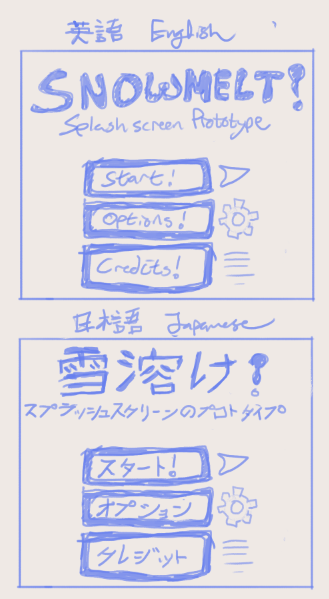 英語 English
SNOWMELT!
Splash screen Prototype
Start!
Options!
Credits!
日本語 Japanese
雪溶け!
スプラッシュスクリーンのプロトタイプ
スタート!
オプション
クレジット